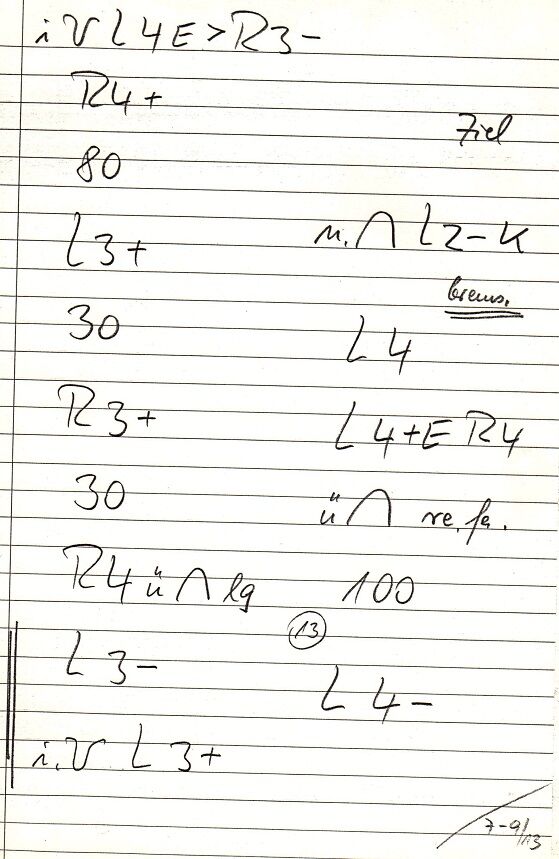 i V L4E>R3-
R4+
80
L3+
30
R3+
30
R4 ü ∩ lg
L3-
i. V L3+
Ziel
n. ∩ L2-K
brems.
L4
L4+E R4
ü ∩ re. fa.
100
13
L4-
7-9/13